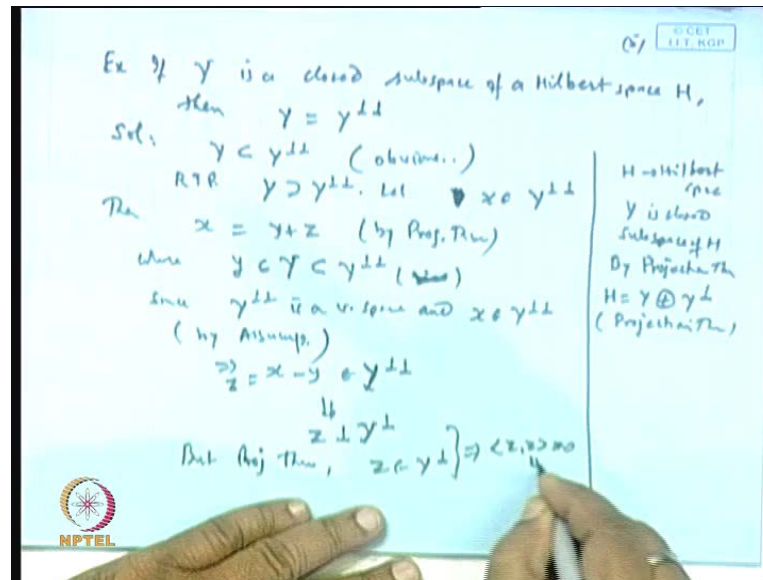 (5)
© CET
I.I.T. KGP
Ex If Y is a closed subspace of a Hilbert space H,
then Y = Y⊥⊥
Sol. Y ⊂ Y⊥⊥ (obvious..)
RTP Y ⊃ Y⊥⊥. Let x ∈ Y⊥⊥
Then x = y+z (by Proj. Thm)
where y ∈ Y ⊂ Y⊥⊥
since Y⊥⊥ is a v. space and x ∈ Y⊥⊥
(by Assump.)
⇒ z = x - y ∈ Y⊥⊥
⇓
z ⊥ Y⊥
But Proj Thm, z ∈ Y⊥ } ⇒ <z, z> = 0
⇓
H → Hilbert
spce
Y is closed
subspace of H
By Projection Th
H = Y ⊕ Y⊥
(Projection Th)
NPTEL